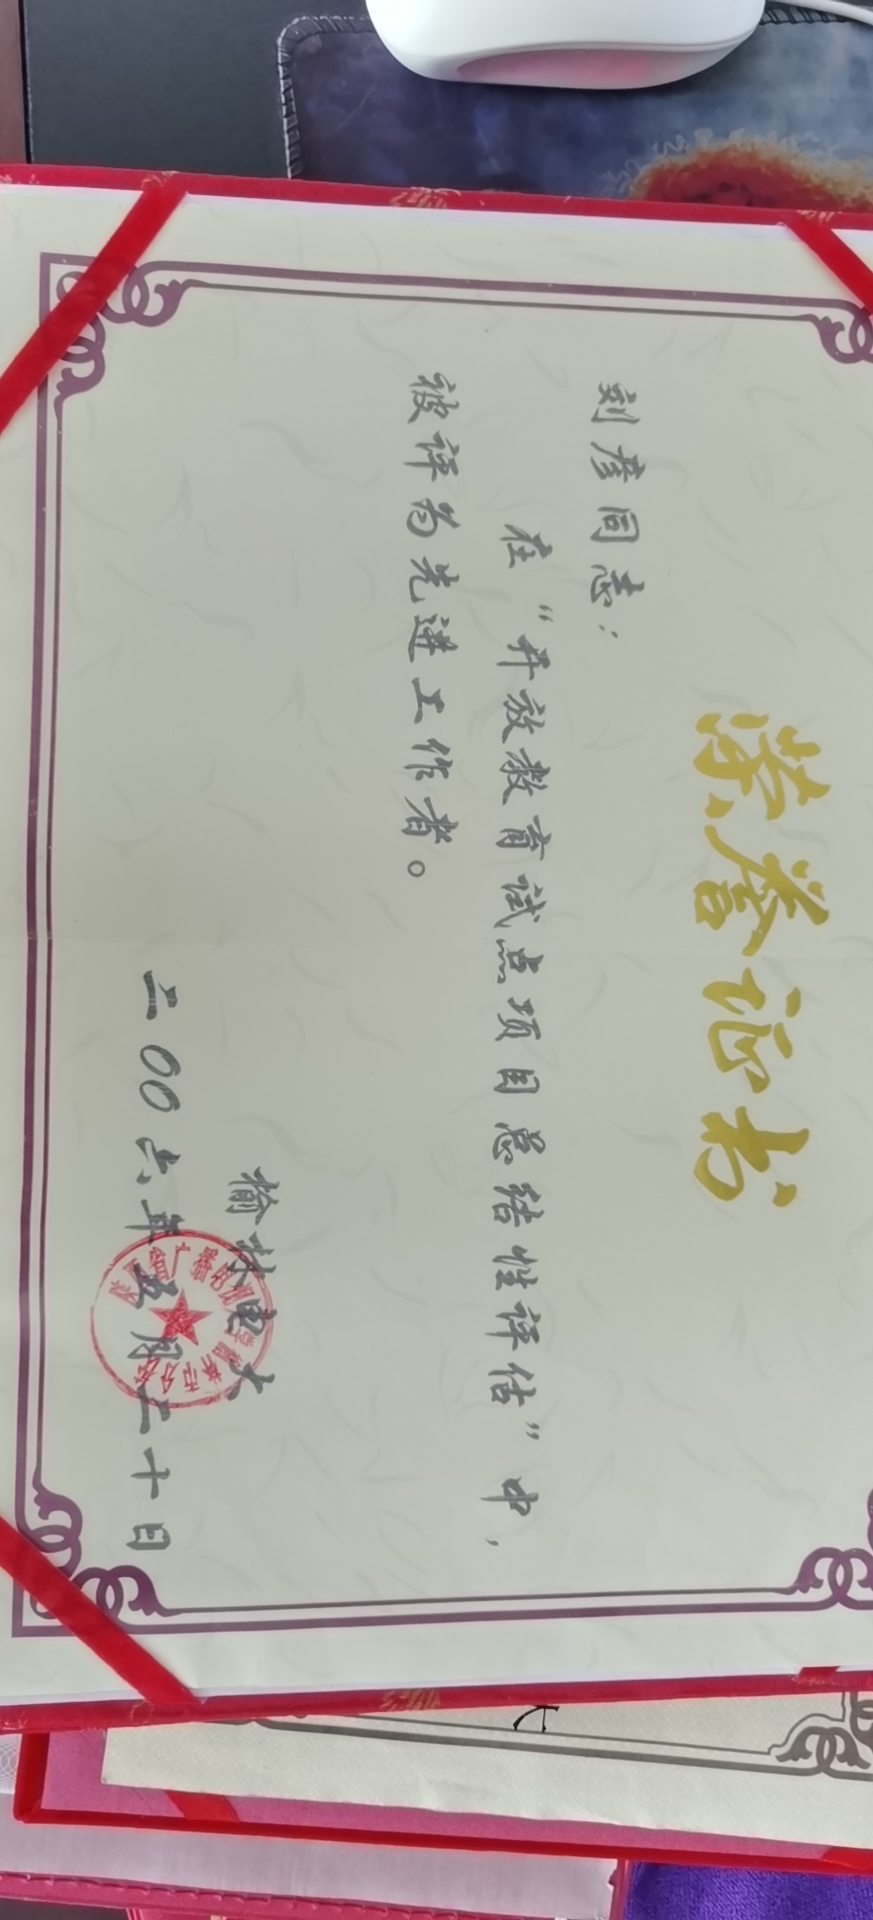 荣誉证书
刘彦同志：
在“开放教育试点项目总结性评估”中，
被评为先进工作者。
榆林电大
二〇〇六年五月二十日